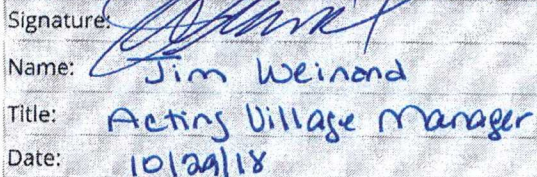 Signature:
Name: Jim Weinand
Title: Acting Village Manager
Date: 10/29/18